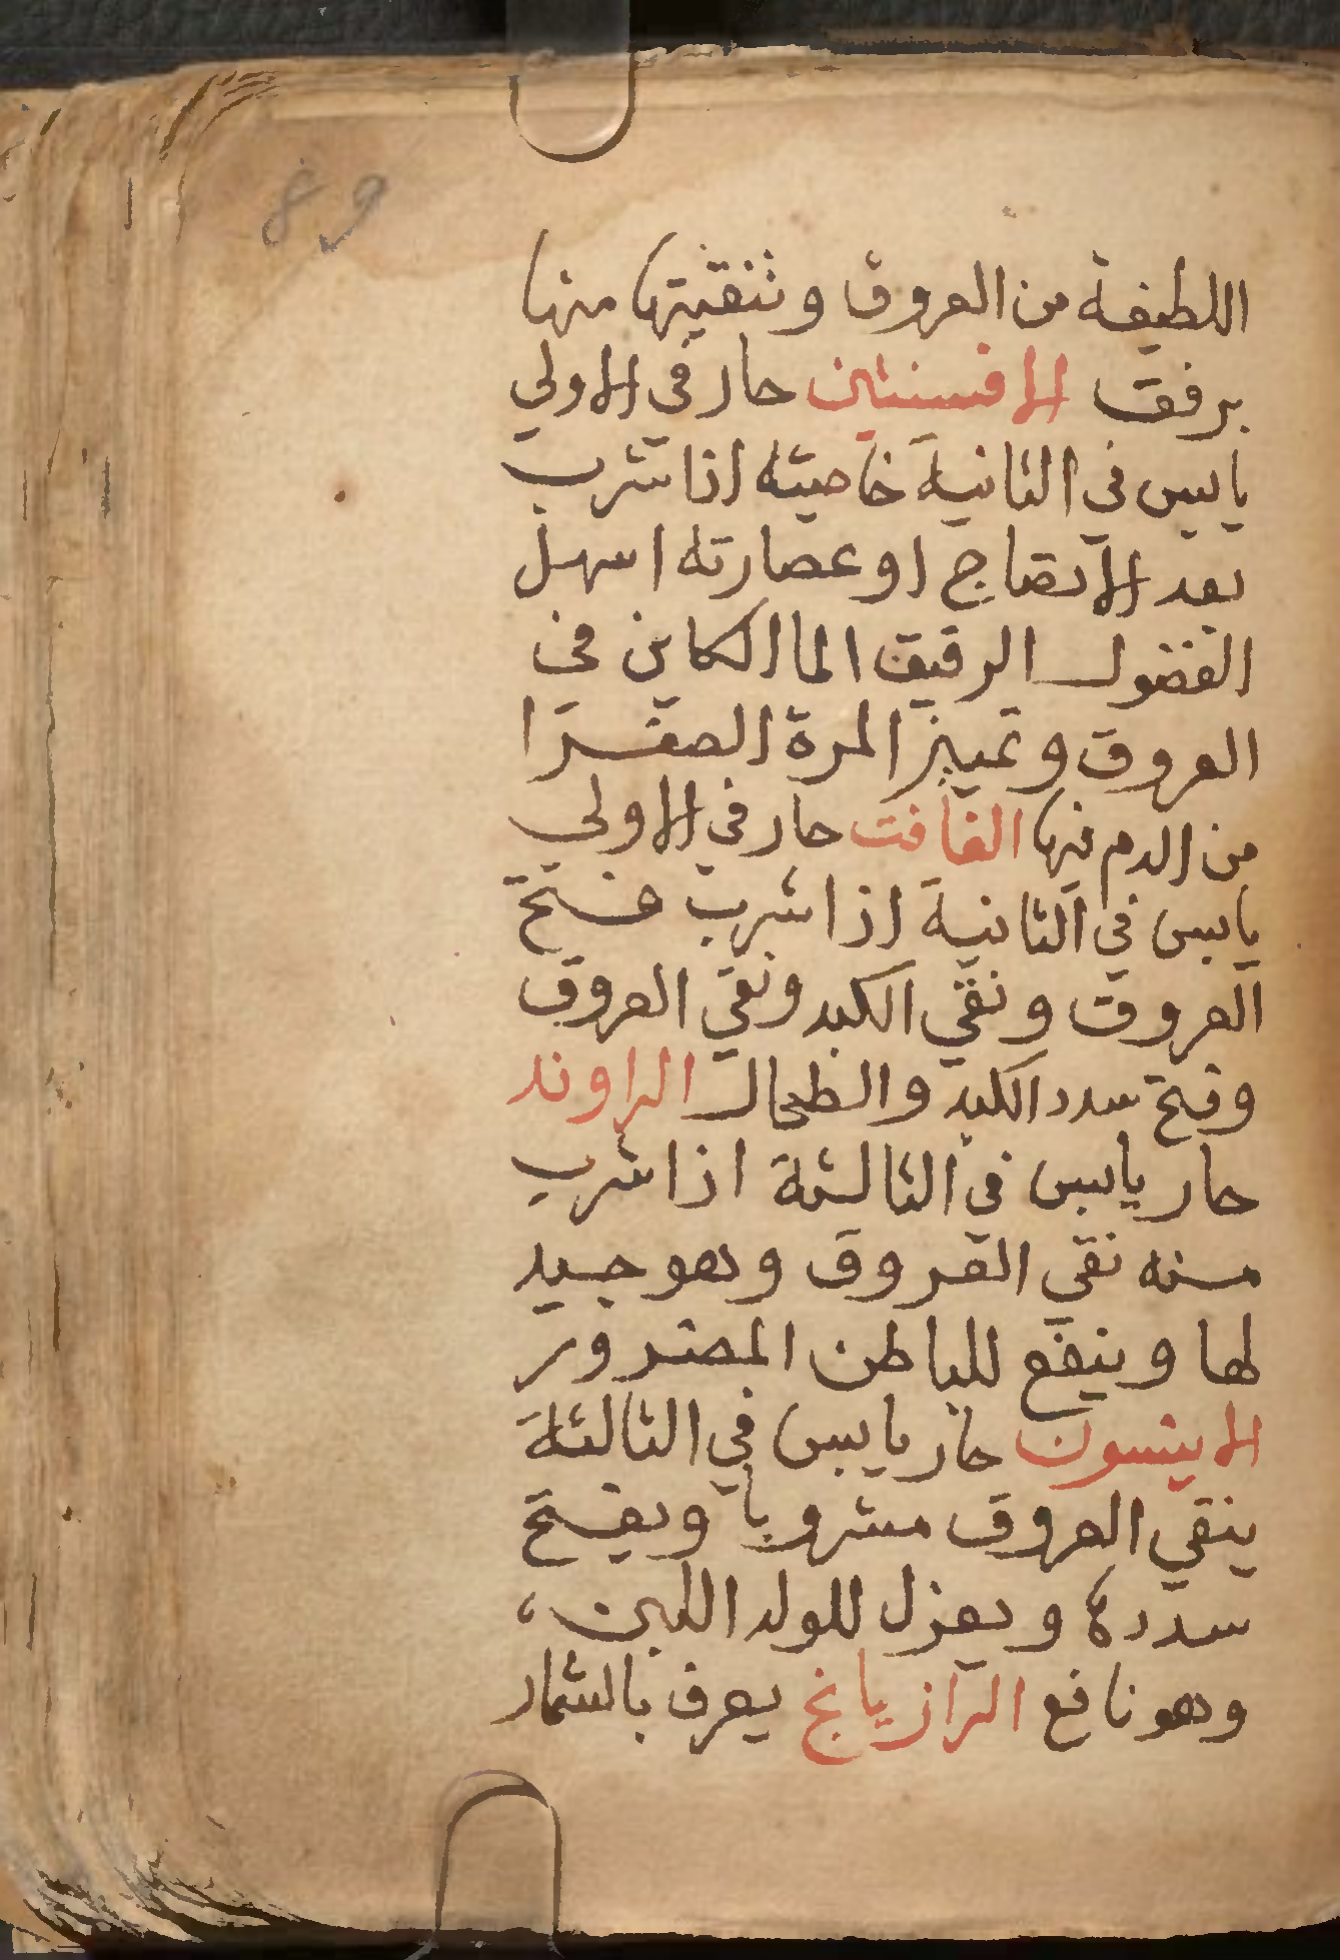 89
اللطيفة من العروق وتنقيتها منها
برفق الافسنتين حار فى الاولي
يابس في الثانية خاصيته اذا شرب
بعد الانضاج او عصارته اسهل
الفضول الرقيق الما الكاين في
العروق وتمييز المرة الصفرا
من الدم فيها الغافت حار في الاولي
يابس في الثانية اذا شرب فتح
العروق ونقي الكبد ونقي العروق
وفتح سدد الكبد والطحال الراوند
حار يابس في الثالثة اذا شرب
منه نقي العروق وهو جيد
لها وينفع للباطن المضرور
الاينسون حار يابس في الثالثة
ينقي العروق مشروبا ويفتح
سددها ويعزل للولد اللبن،
وهو نافع الرازيانج يعرف بالشمار